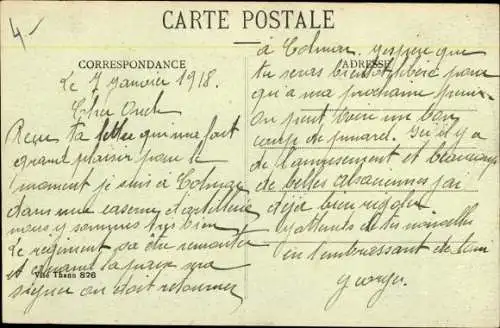 4-
CARTE POSTALE
CORRESPONDANCE
ADRESSE
Le 7 Janvier 1918.
Cher Oncle
Reçu ta lettre qui ma fait
grand plaisir pour le
moment je suis à Colmar
dans une caserne d'artillerie
nous y sommes très bien
Le régiment va du remonter
et quand la paix sera
signer on doit retourner
Visé Thann 826
à Colmar. J'espère que
tu seras bientôt libéré pour
qu'a ma prochaine perm
on peut boire un bon
coup de pinard. Ici il y a
de l'amusement et beaucoup
de belles alsaciennes j'ai
déjà bien rigoler
J'attends de tes nouvelles
en t'embrassant de loin
Georges